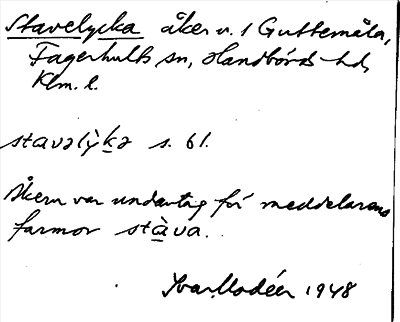 Stavelycka åker v. 1 Guttemåla,
Fagerhults sn, Handbörds hd,
Klm. l.
stavəlỳkə s. 61.
Åkern var undantag för meddelarens
farmor stàva.
Ivar Modéer 1948